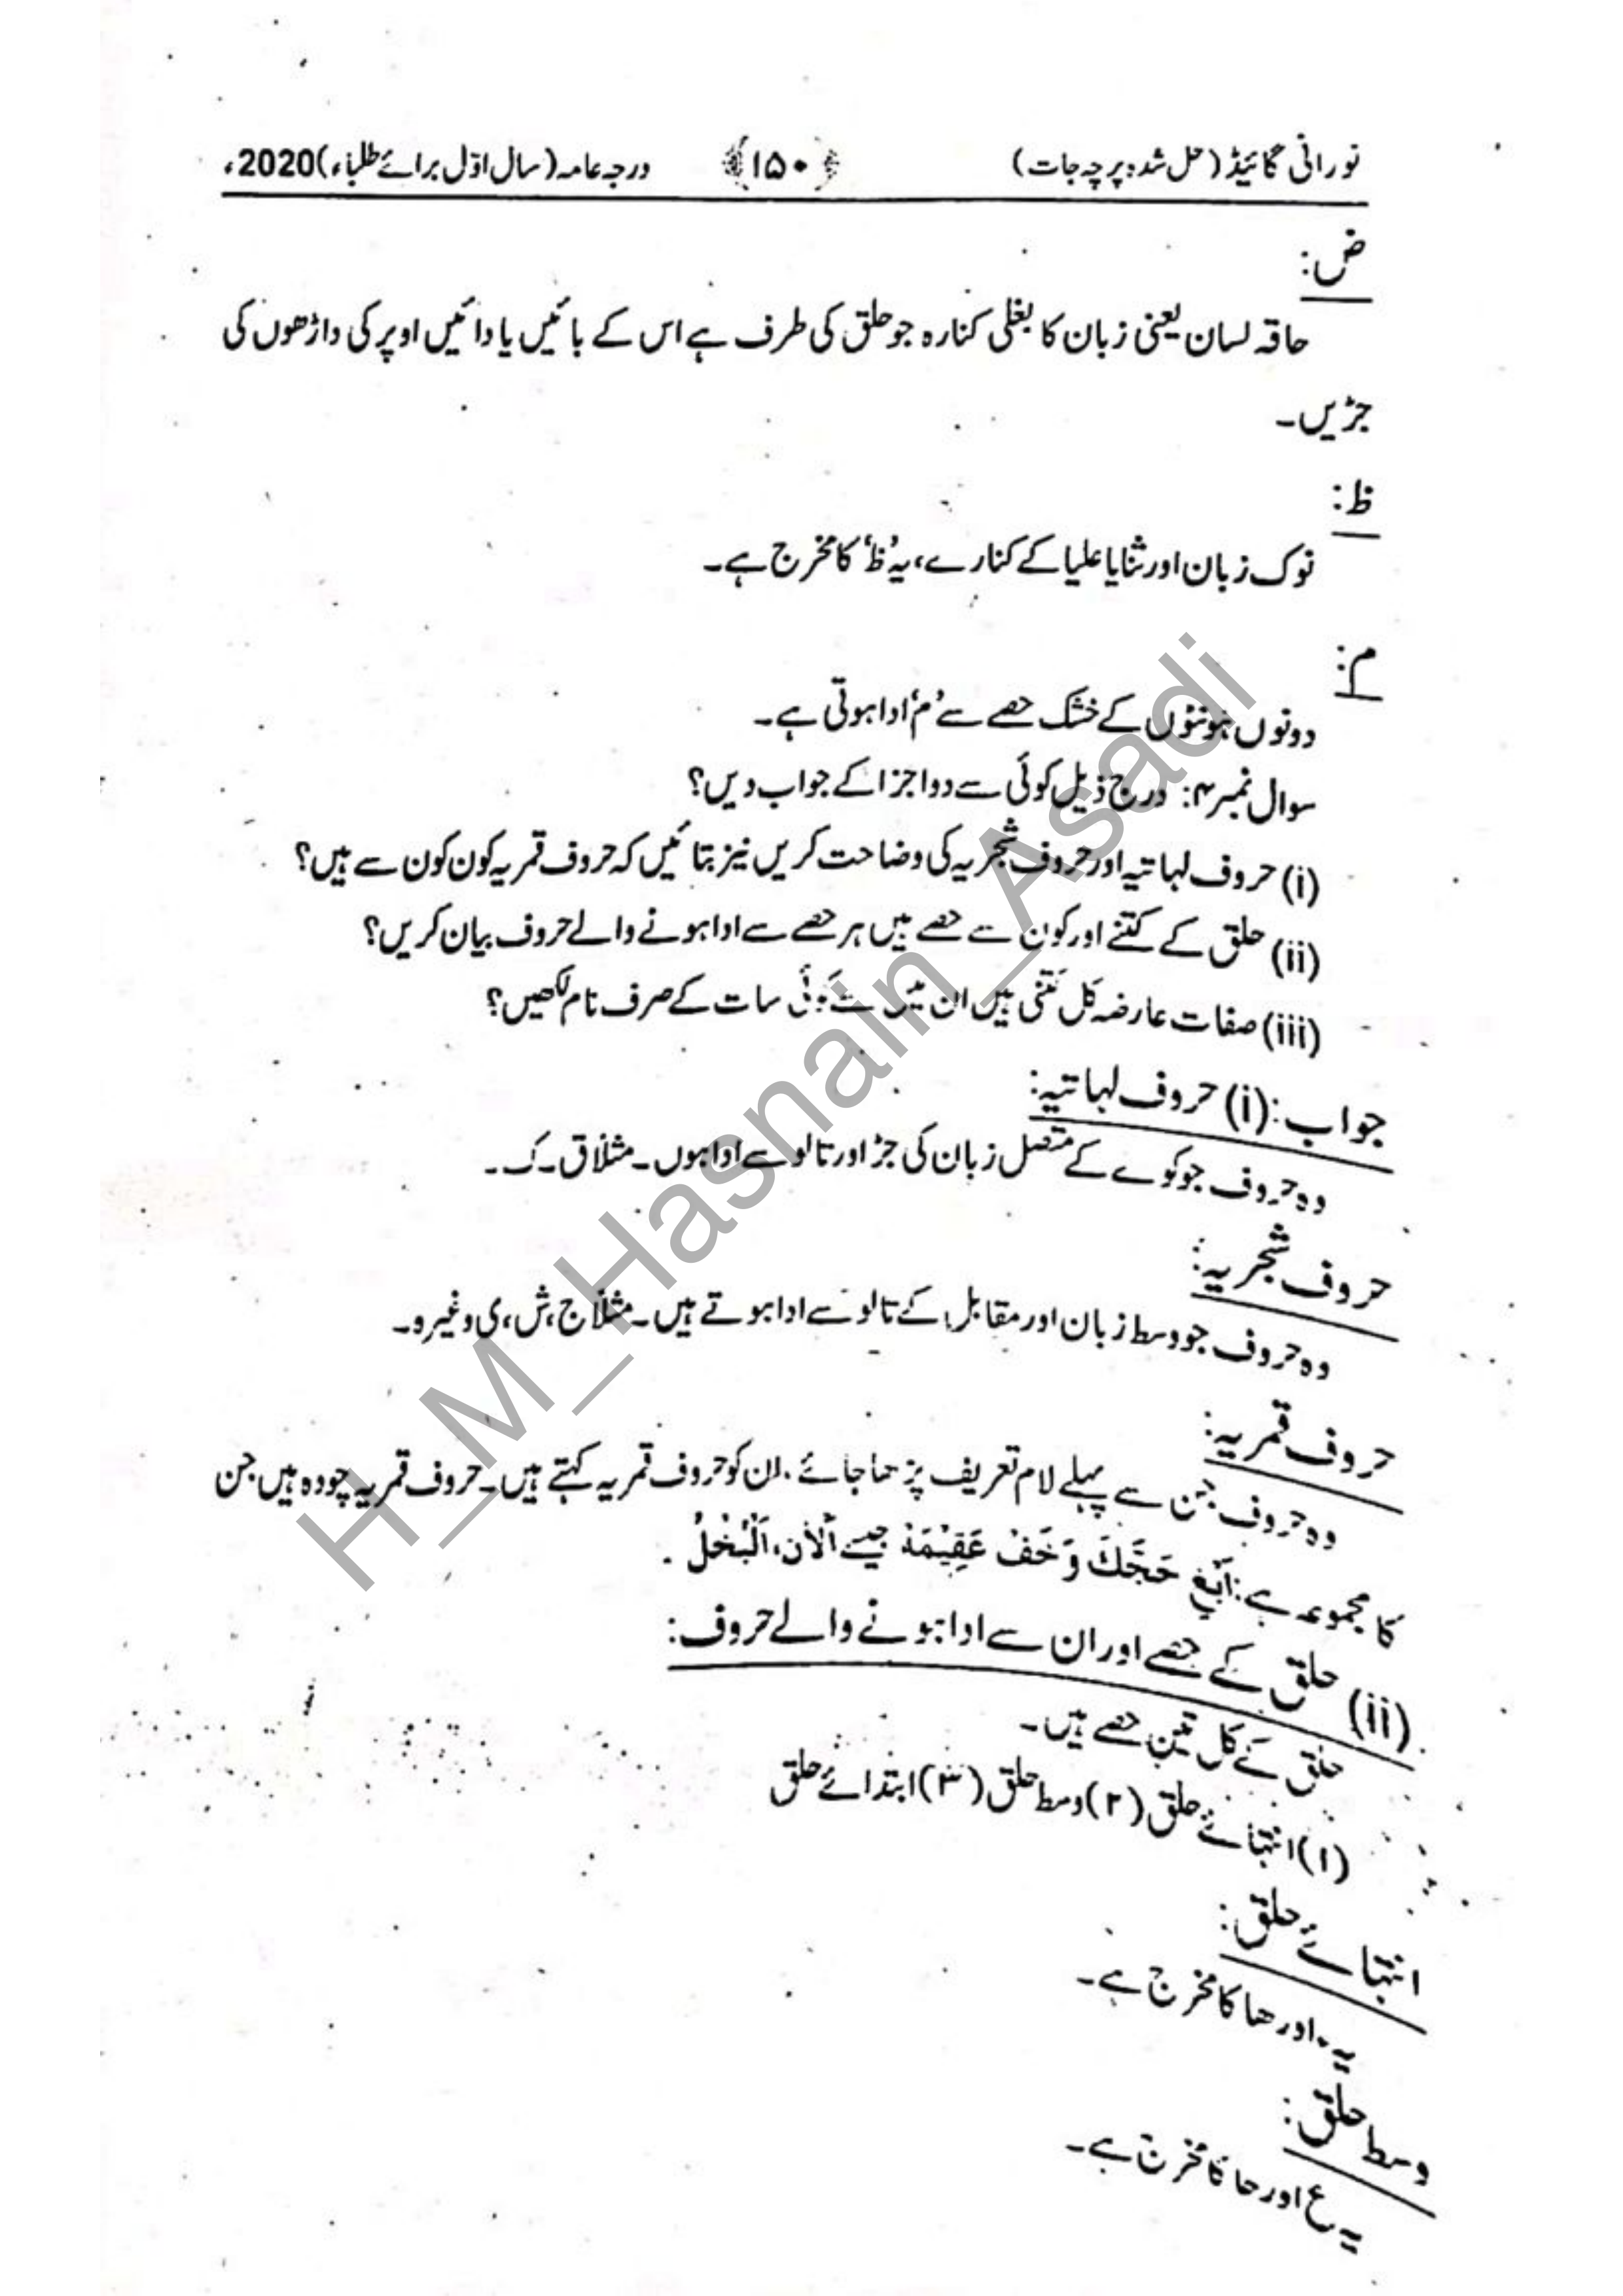 نورانی گائیڈ (حل شدہ پرچہ جات) ﴿۱۵۰﴾ درجہ عامہ (سال اوّل برائے طلباء) 2020ء
ض:
حاقہ لسان یعنی زبان کا بغلی کنارہ جو حلق کی طرف ہے اس کے بائیں یا دائیں اوپر کی داڑھوں کی
جڑیں۔
ظ:
نوک زبان اور ثنایا علیا کے کنارے، یہ 'ظ' کا مخرج ہے۔
م:
دونوں ہونٹوں کے خشک حصے سے 'م' ادا ہوتی ہے۔
سوال نمبر ۴: درج ذیل کوئی سے دو اجزا کے جواب دیں؟
(i) حروف لہاتیہ اور حروف شجریہ کی وضاحت کریں نیز بتائیں کہ حروف قمریہ کون کون سے ہیں؟
(ii) حلق کے کتنے اور کون سے حصے ہیں ہر حصے سے ادا ہونے والے حروف بیان کریں؟
(iii) صفات عارضہ کل کتنی ہیں ان میں سے کوئی سات کے صرف نام لکھیں؟
جواب: (i) حروف لہاتیہ:
وہ حروف جو کوے کے متصل زبان کی جڑ اور تالو سے ادا ہوں۔ مثلاً ق۔ ک۔
حروف شجریہ:
وہ حروف جو وسط زبان اور مقابل کے تالو سے ادا ہوتے ہیں۔ مثلاً ج، ش، ی وغیرہ۔
حروف قمریہ:
وہ حروف جن سے پہلے لام تعریف پڑھا جائے، ان کو حروف قمریہ کہتے ہیں۔ حروف قمریہ چودہ ہیں جن
کا مجموعہ ہے: اَبْغِ حَجَّكَ وَخَفْ عَقِيْمَهٗ جیسے اَلْاٰن، اَلْبُخْلُ۔
(ii) حلق کے حصے اور ان سے ادا ہونے والے حروف:
حلق کے کل تین حصے ہیں۔
(۱) انتہائے حلق (۲) وسط حلق (۳) ابتدائے حلق
انتہائے حلق:
یہ ء اور ھا کا مخرج ہے۔
وسط حلق:
یہ ع اور حا کا مخرج ہے۔
H_M_Hasnain_Asadi